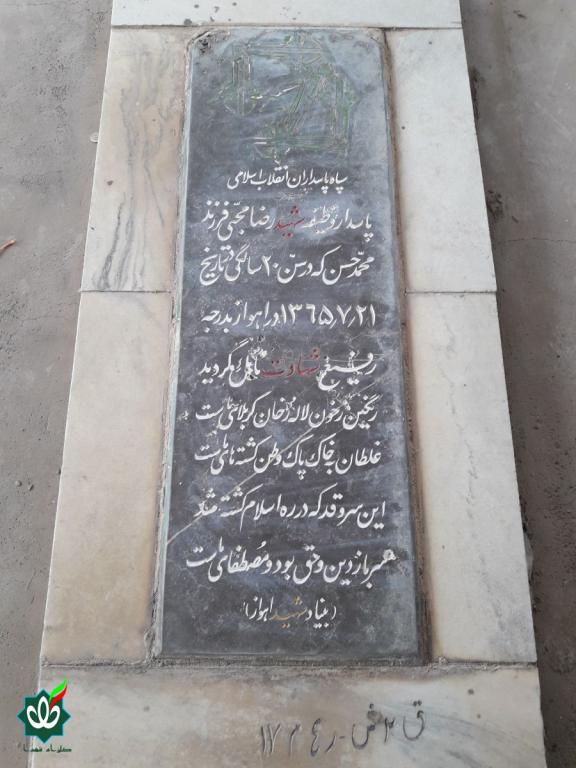 سپاه پاسداران انقلاب اسلامی
پاسدار وظیفه شهید رضا مجتبی فرزند
محمد حسن که در سن ۲۰ سالگی در تاریخ
۱۳۶۵٫۷٫۲۱ در اهواز بدرجه
رفیع شهادت نائل گردید
رنگین ز خون لاله رخان کربلای ماست
غلطان به خاک پاک وطن کشته های ماست
این سرو قد که در ره اسلام کشته شد
سرباز دین و حق بود و مصطفای ماست
(بنیاد شهید اهواز)
ق ۲ ض - ر ۴ ۱۷۳